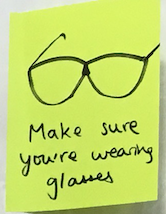 Make sure
you're wearing
glasses